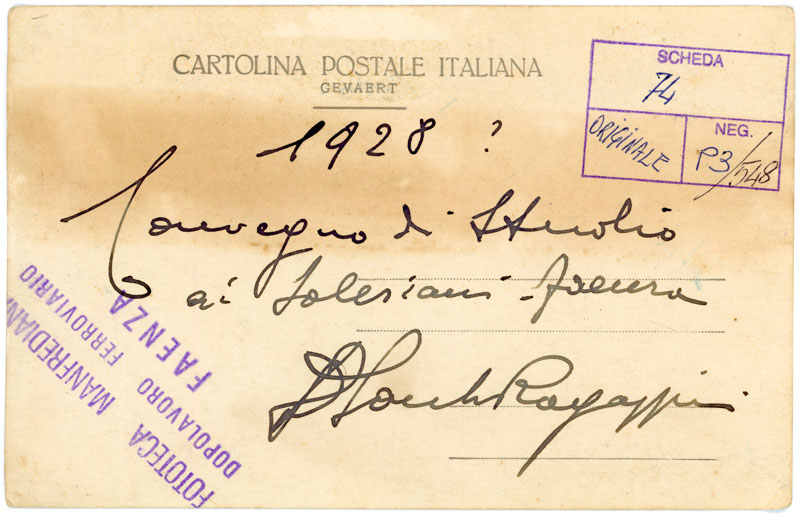 CARTOLINA POSTALE ITALIANA
GEVAERT
SCHEDA
74
ORIGINALE
NEG.
P3/548
1928 ?
Convegno di Studio
ai Salesiani - Faenza
Ragazzini
FOTOTECA MANFREDIANA
DOPOLAVORO FERROVIARIO
FAENZA